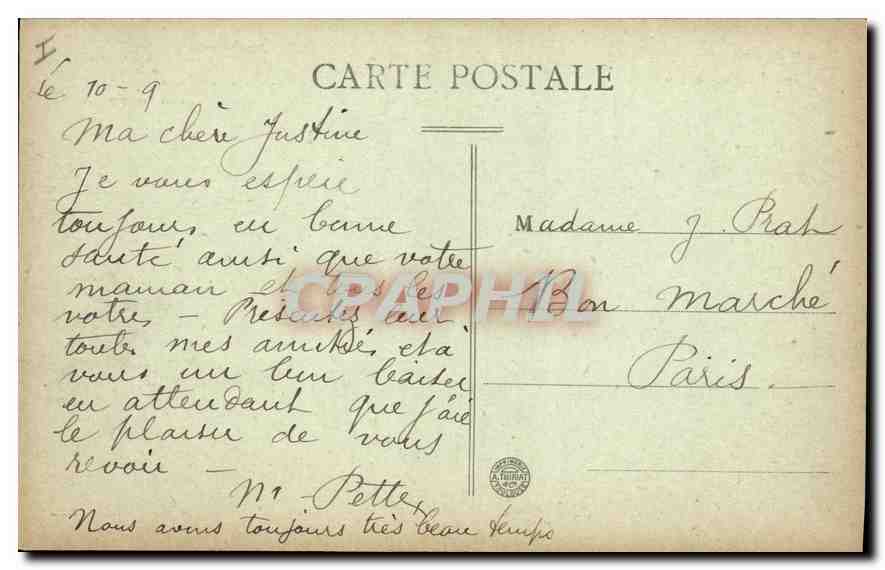 I
le 10-9
CARTE POSTALE
Ma chère Justine
Je vous espère
toujours en bonne
santé ainsi que votre
maman et tous les
votres - Présentez leur
toutes mes amitiés et à
vous un bon baiser
en attendant que j'aie
le plaisir de vous
revoir -
Nous avons toujours très beau temps
Madame J. Prat
Bon Marché
Paris.
IMPRIMERIE
A. THIRIAT
& Cie
TOULOUSE
CPAPHIL